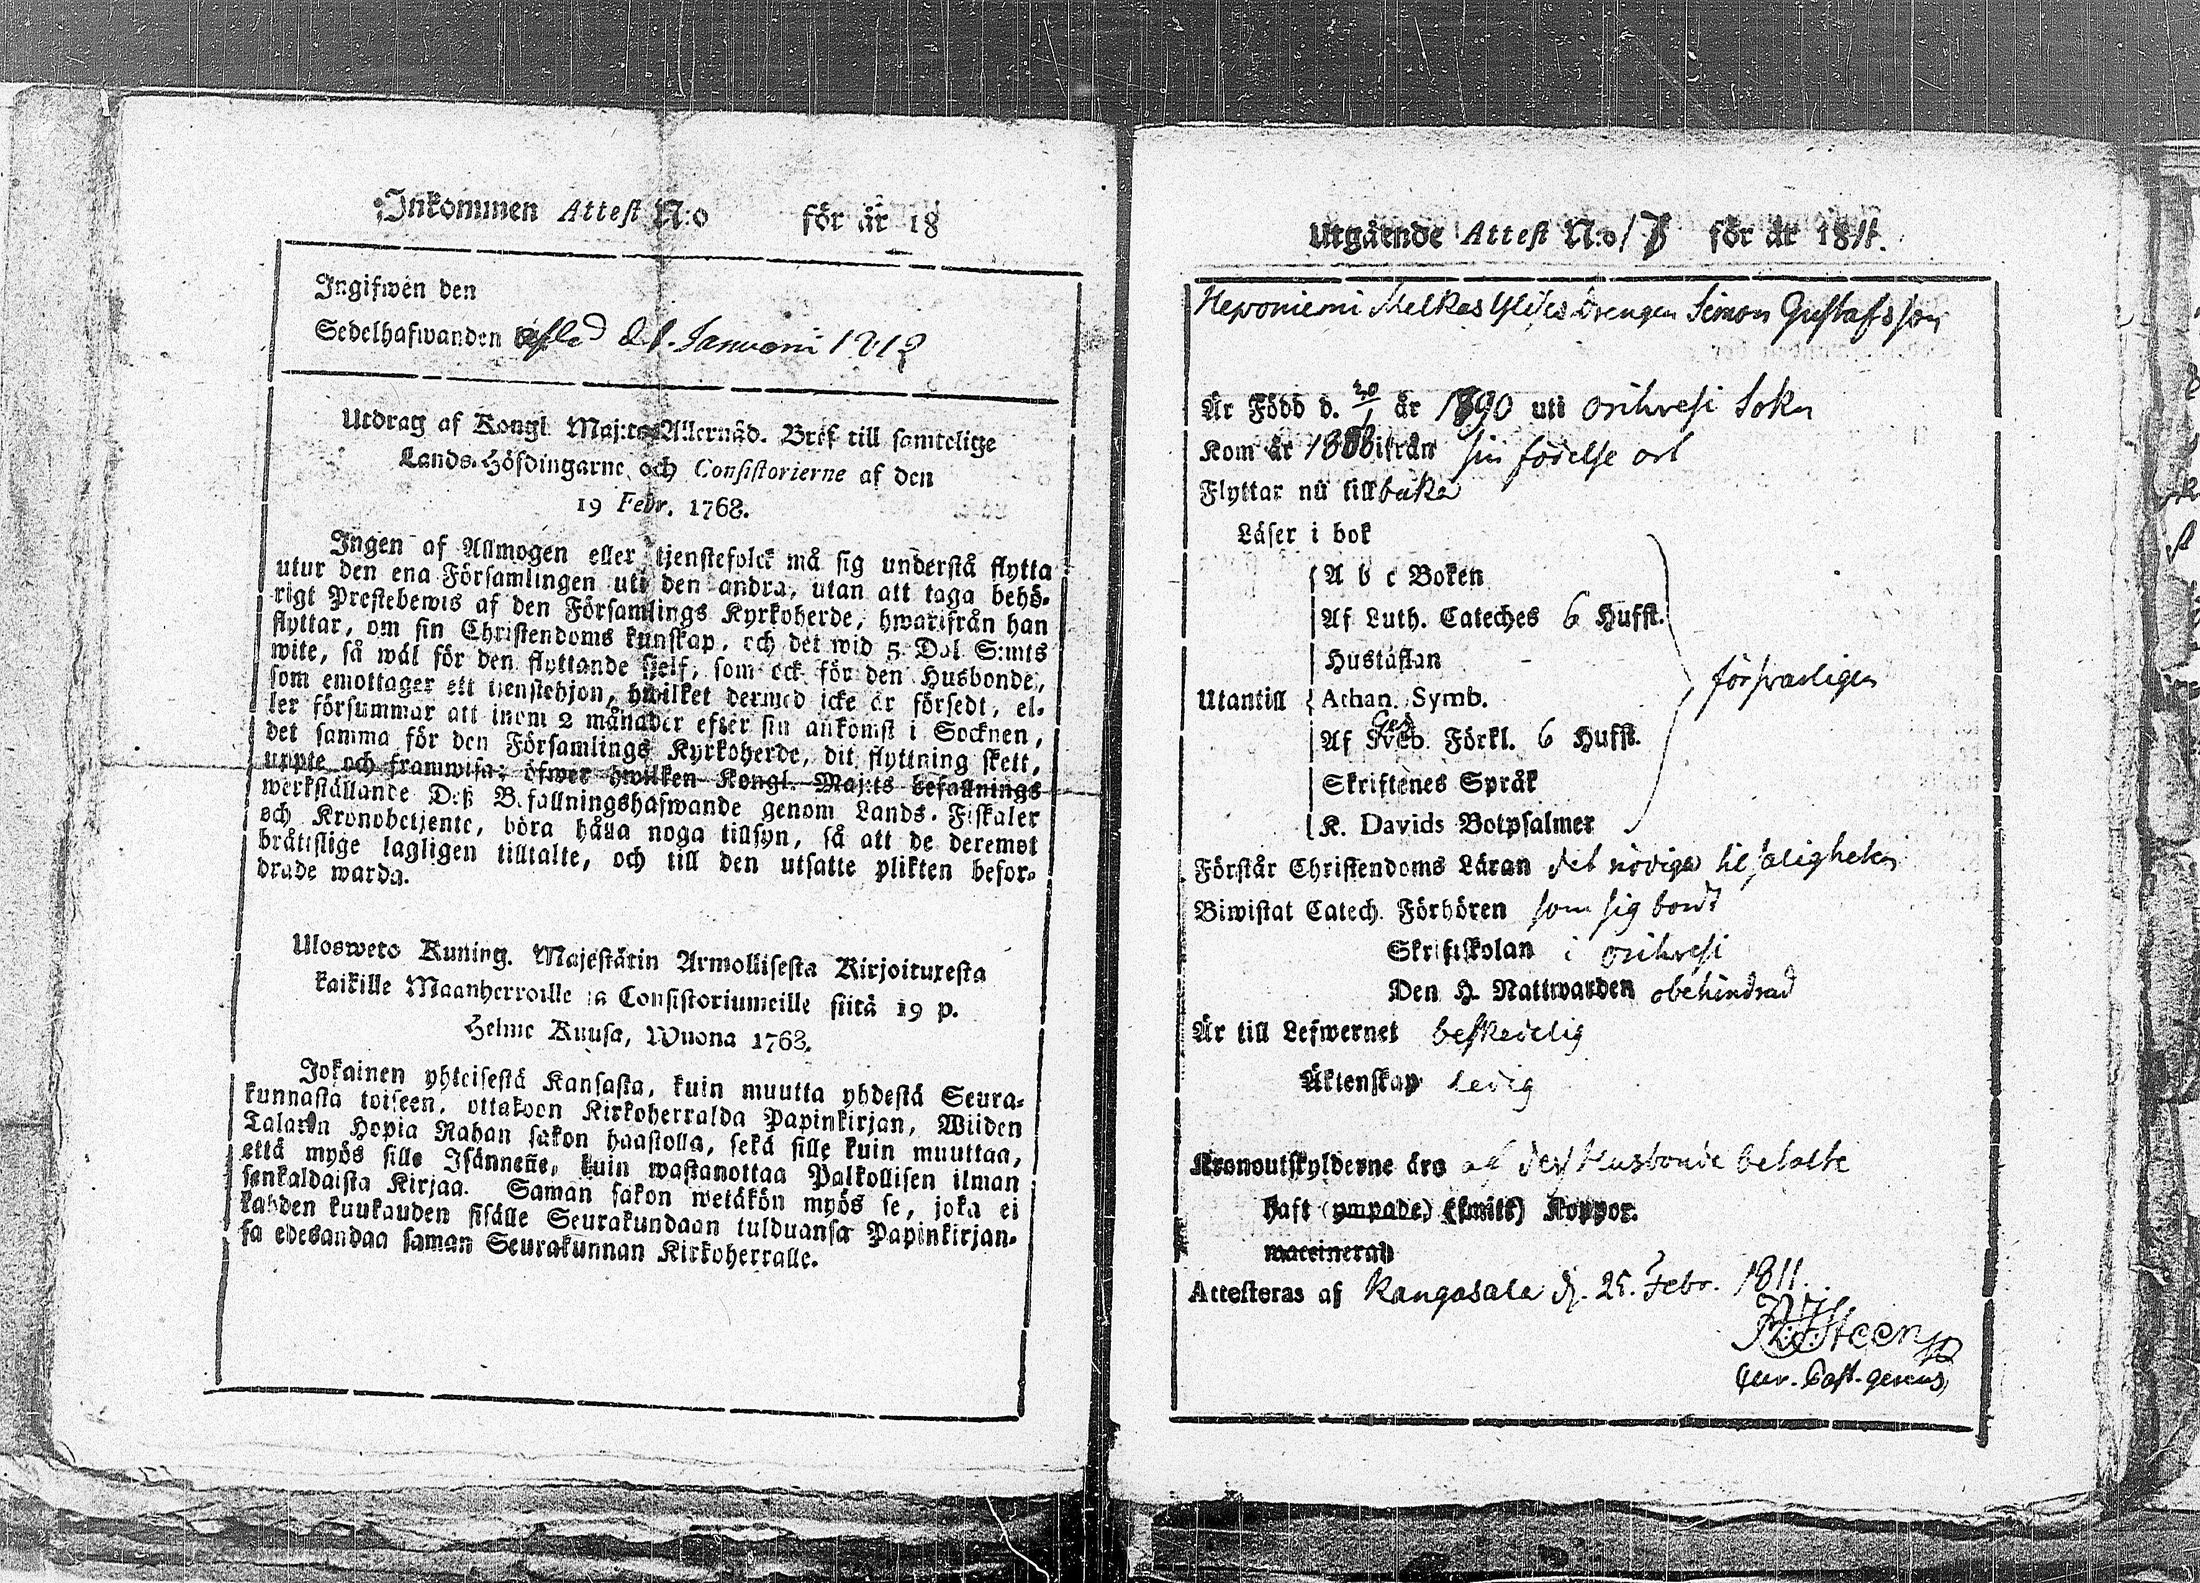 Inkommen Attest N:o för år 18
Ingifwen den
Sedelhafwanden afled d. 1. Januari 1812
Utdrag af Kongl. Maj:ts Allernåd. Bref till samtelige
Lands-Höfdingarne och Consistorierne af den
19 Febr. 1768.
Ingen af Allmogen eller tjenstefolck må sig understå flytta
utur den ena Församlingen uti den andra, utan att taga behö-
rigt Prestebewis af den Församlings Kyrkoherde, hwarifrån han
flyttar, om sin Christendoms kunskap, och det wid 5 Dal. S:mts
wite, så wäl för den flyttande sjelf, som ock för den Husbonde,
som emottager ett tjenstehjon, hwilket dermed icke är försedt, el-
ler försummar att inom 2 månader efter sin ankomst i Socknen,
det samma för den Församlings Kyrkoherde, dit flyttning skett,
uppte och framwisa; öfwer hwilken Kongl. Maj:ts befallnings
werkställande Deß Befallningshafwande genom Lands-Fiskaler
och Kronobetjente, böra hålla noga tillsyn, så att de deremot
bråttslige lagligen tilltalte, och till den utsatte plikten befor-
drade warda.
Ulosweto Kuning. Majestätin Armollisesta Kirjoituxesta
kaikille Maanherroille ja Consistoriumeille siitä 19 p.
Helme Kuusa, Wuona 1768.
Jokainen yhteisestä Kansasta, kuin muutta yhdestä Seura-
kunnasta toiseen, ottakoon Kirkoherralda Papinkirjan, Wiiden
Talarin Hopia Rahan sakon haastolla, sekä sille kuin muuttaa,
että myös sille Isänneñe, kuin wastanottaa Palkollisen ilman
senkaldaista Kirjaa. Saman sakon wetäkön myös se, joka ei
kahden kuukauden sisälle Seurakundaan tulduansa Papinkirjan-
sa edesandaa saman Seurakunnan Kirkoherralle.
Utgående Attest N:o 17 för år 1811.
Heponiemi Melkas Drengen Simon Gustafsson
Är Född d. 20/1 år 1790 uti Orihvesi Sokn
Kom år 1808 ifrån sin födelse ort
Flyttar nu tillbaka
Läser i bok
A b c Boken
Af Luth. Cateches 6 Hufst.
Hustaflan
Utantill Athan. Symb. försvarligen
Ges
Af Sveb. Förkl. 6 Hufst.
Skriftenes Språk
K. Davids Botpsalmer
Förstår Christendoms Läran det nödiga til saligheten
Biwistat Catech. Förhören som sig bordt
Skriftskolan i Orihvesi
Den H. Nattwarden obehindrad
Är till Lefwernet beskedelig
Äktenskap ledig
Kronoutskylderne äro af dess Husbonde betalte
Haft (ympade) (smitt) Koppor.
waccinerad
Attesteras af Kangasala d. 25. Febr. 1811.
Steen
Cur. Past. gerens